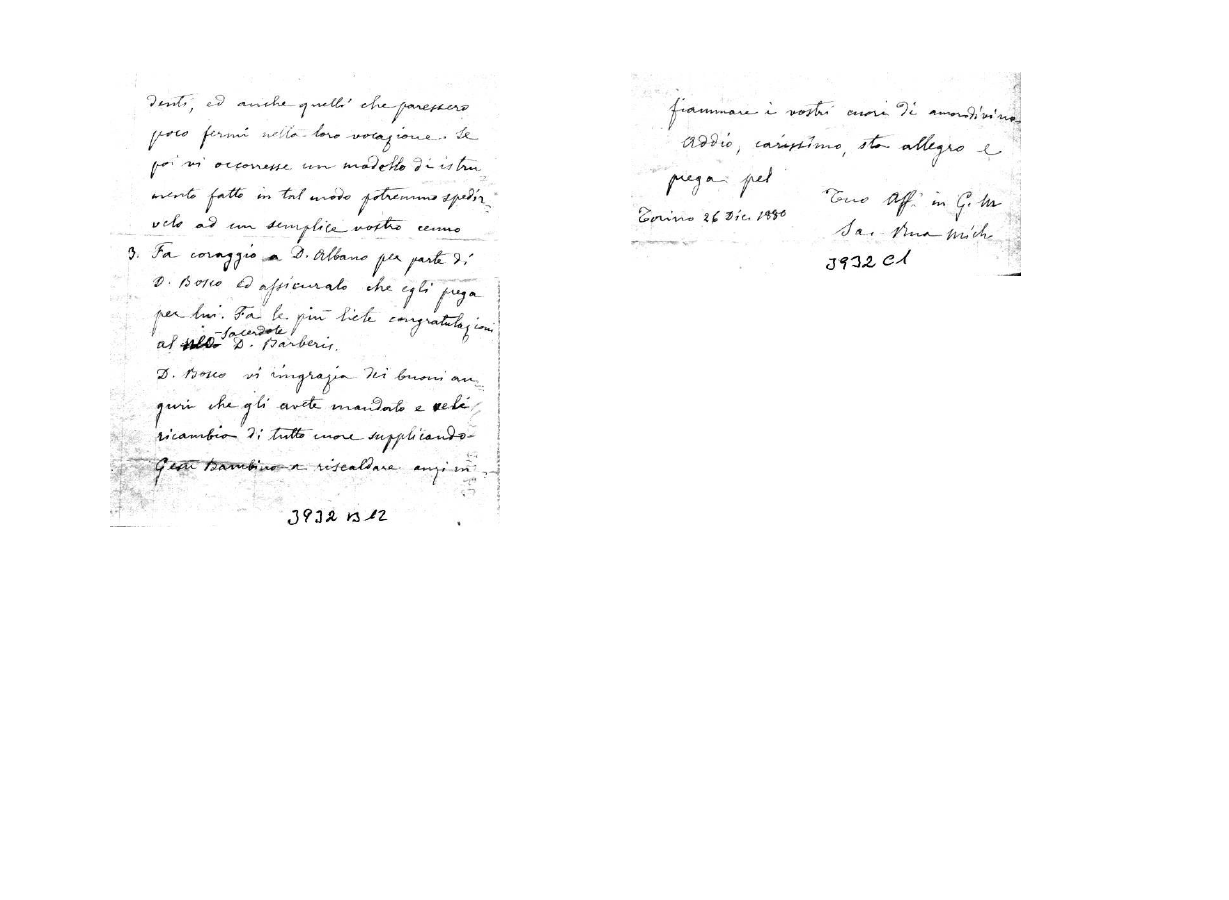 denti, ed anche quelli che paressero
poco fermi nella loro vocazione. Se
poi vi occorresse un modello di istru
mento fatto in tal modo potremmo spedir
velo ad un semplice vostro cenno
3. Fa coraggio a D. Albano per parte di
D. Bosco ed assicuralo che egli prega
per lui. Fa le più liete congratulazioni
al neo-Sacerdote D. Barberis.
D. Bosco vi ringrazia dei buoni au
guri che gli avete mandato e ve li
ricambia di tutto cuore supplicando
Gesù Bambino a riscaldare anzi in
3932 B 12
fiammare i vostri cuori di amor divino
Addio, carissimo, sta allegro e
prega pel
Tuo Aff. in G. M
Torino 26 Dic. 1880
Sa. Rua Mich
3932 C1